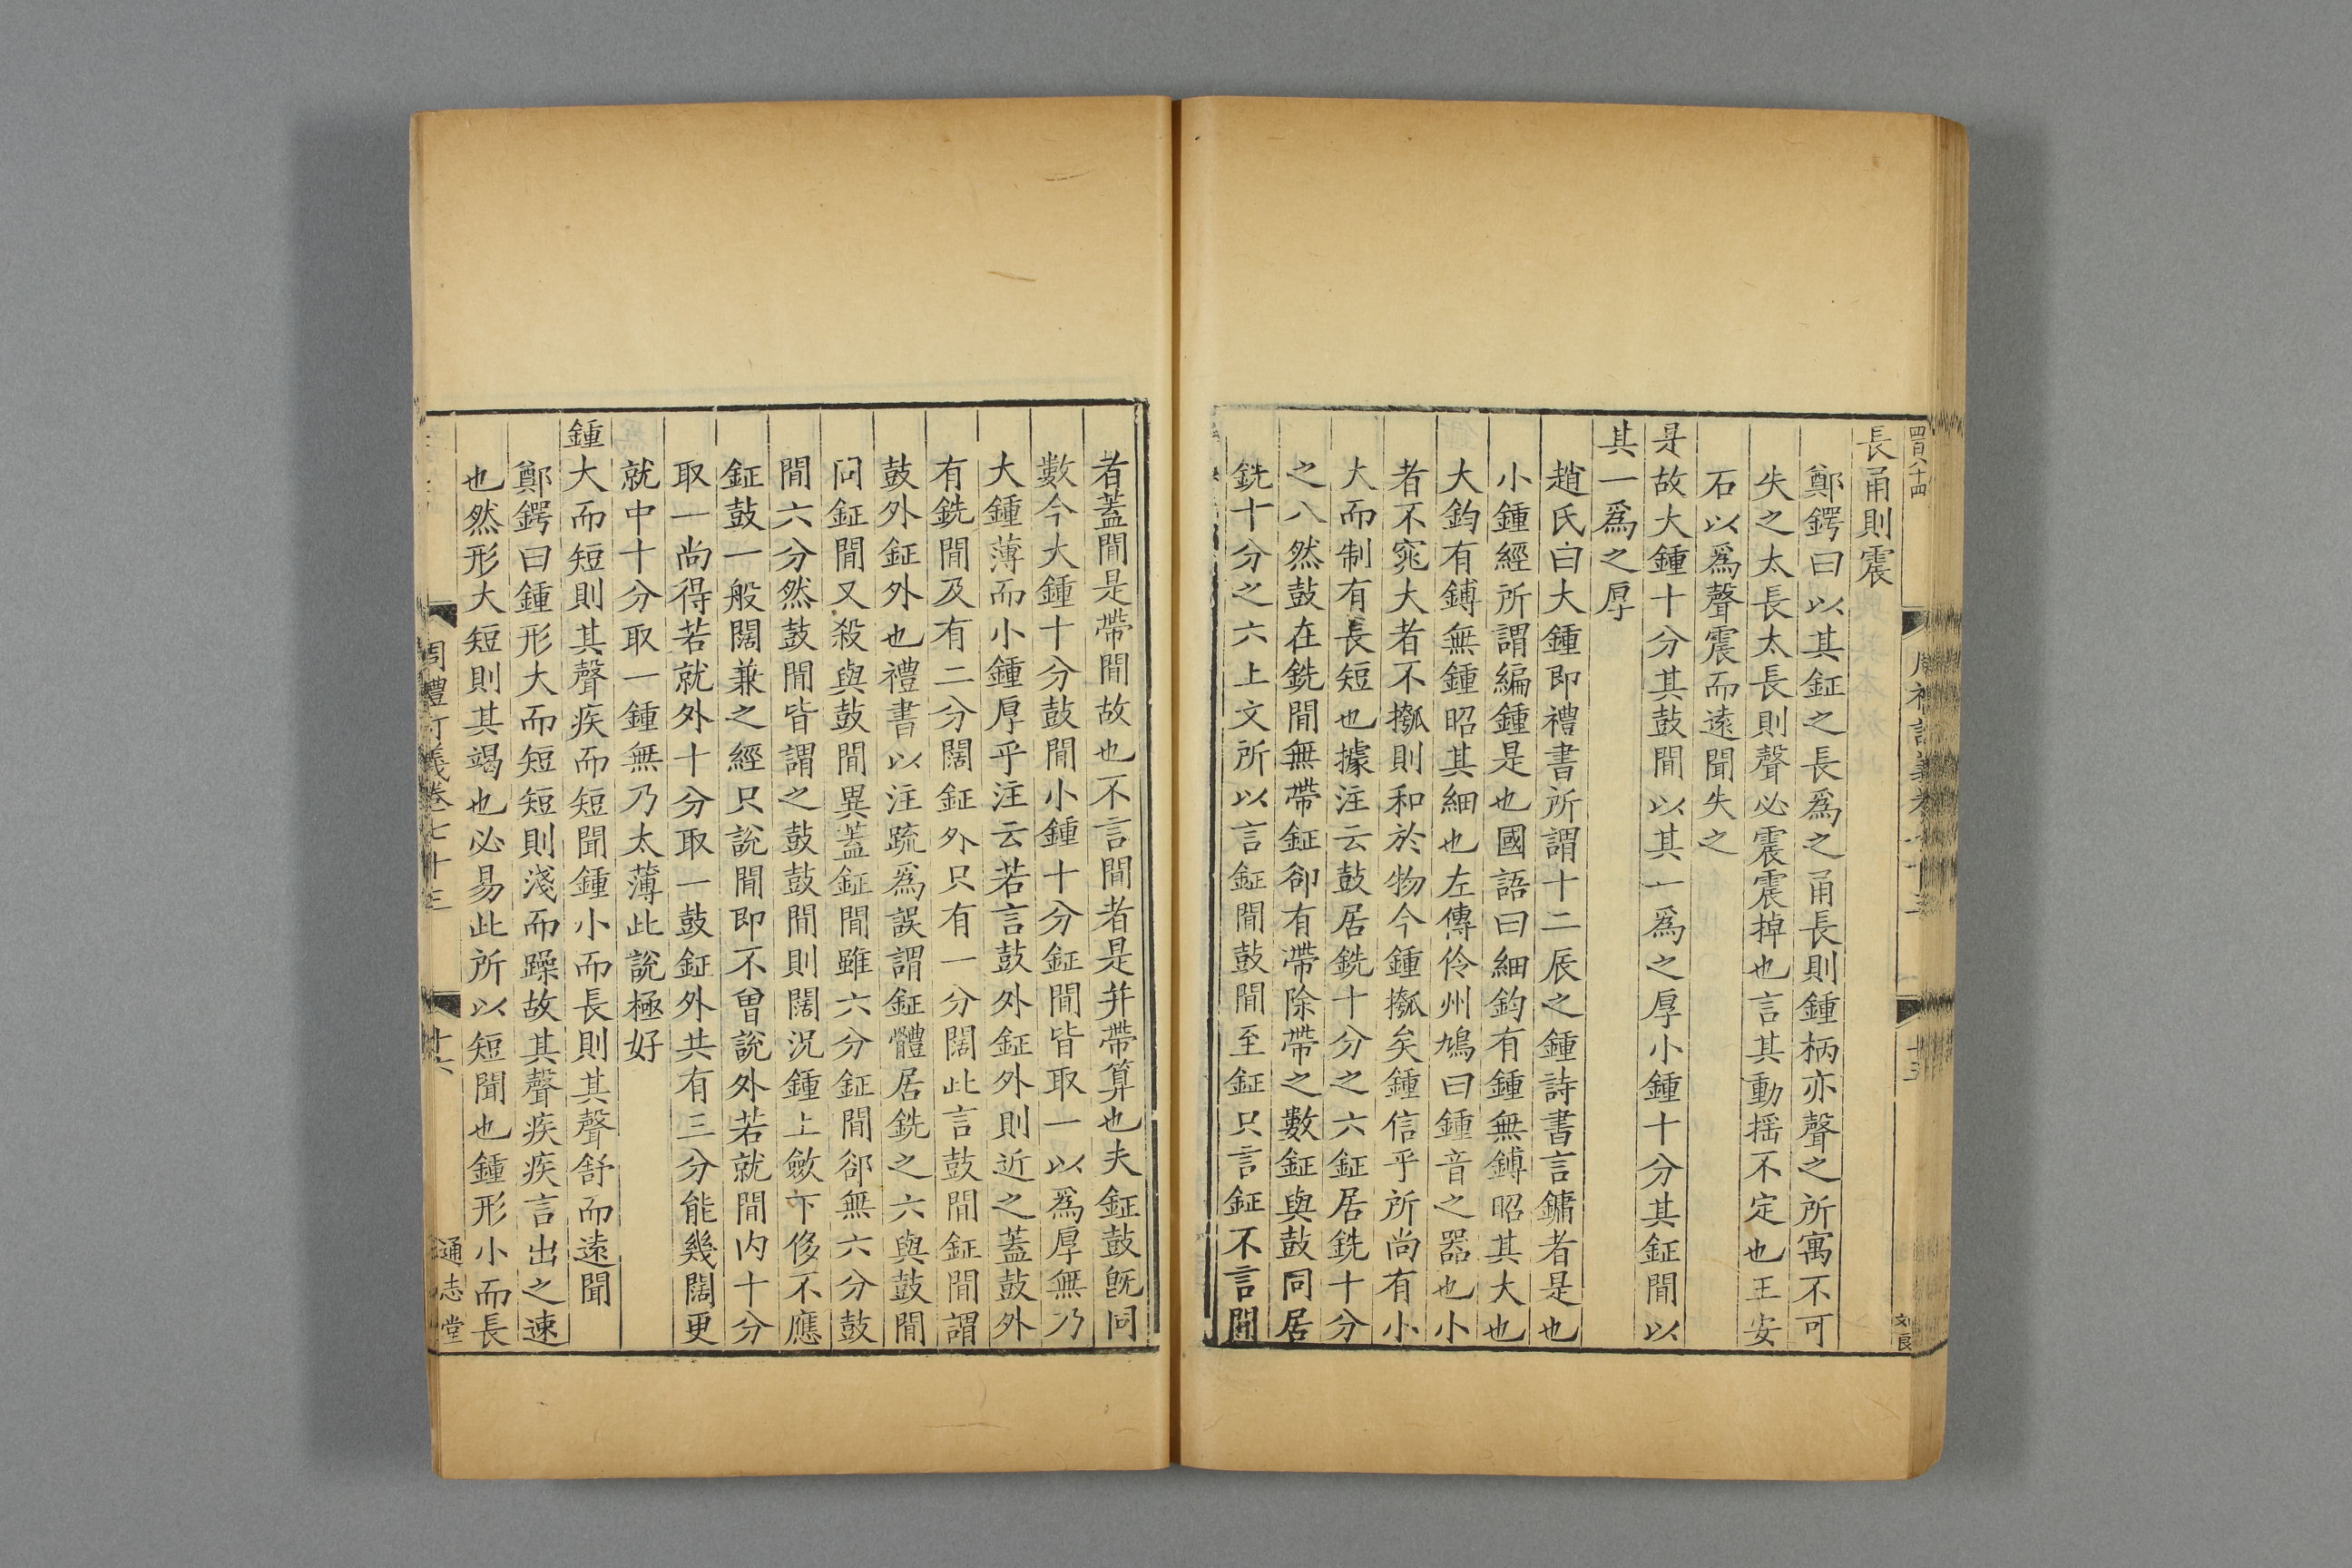 四百八十四
長甬則震
鄭鍔曰以其鉦之長爲之甬長則鍾柄亦聲之所寓不可
失之太長太長則聲必震震掉也言其動揺不定也王安
石以爲聲震而遠聞失之
是故大鍾十分其鼓間以其一爲之厚小鍾十分其鉦間以
其一爲之厚
趙氏曰大鍾即禮書所謂十二辰之鍾詩書言鏞者是也
小鍾經所謂編鍾是也國語曰細鈞有鍾無鎛昭其大也
大鈞有鎛無鍾昭其細也左傳伶州鳩曰鍾音之器也小
者不窕大者不摦則和於物今鍾摦矣鍾信乎所尚有小
大而制有長短也據注云鼓居銑十分之六鉦居銑十分
之八然鼓在銑間無帶鉦卻有帶除帶之數鉦與鼓同居
銑十分之六上文所以言鉦間鼓間至鉦只言鉦不言間
者蓋間是帶間故也不言間者是并帶算也夫鉦鼓旣同
數今大鍾十分鼓間小鍾十分鉦間皆取一以爲厚無乃
大鍾薄而小鍾厚乎注云若言鼓外鉦外則近之蓋鼓外
有銑間及有二分闊鉦外只有一分闊此言鼓間鉦間謂
鼓外鉦外也禮書以注疏爲誤謂鉦體居銑之六與鼓間
同鉦間又殺與鼓間異蓋鉦間雖六分鉦間郤無六分鼓
間六分然鼓間皆謂之鼓鼓間則闊況鍾上斂下侈不應
鉦鼓一般闊兼之經只說間即不曾說外若就間内十分
取一尚得若就外十分取一鼓鉦外共有三分能幾闊更
就中十分取一鍾無乃太薄此說極好
鍾大而短則其聲疾而短聞鍾小而長則其聲舒而遠聞
鄭鍔曰鍾形大而短短則淺而躁故其聲疾疾言出之速
也然形大短則其竭也必易此所以短聞也鍾形小而長
周禮訂義卷七十三
十六
通志堂